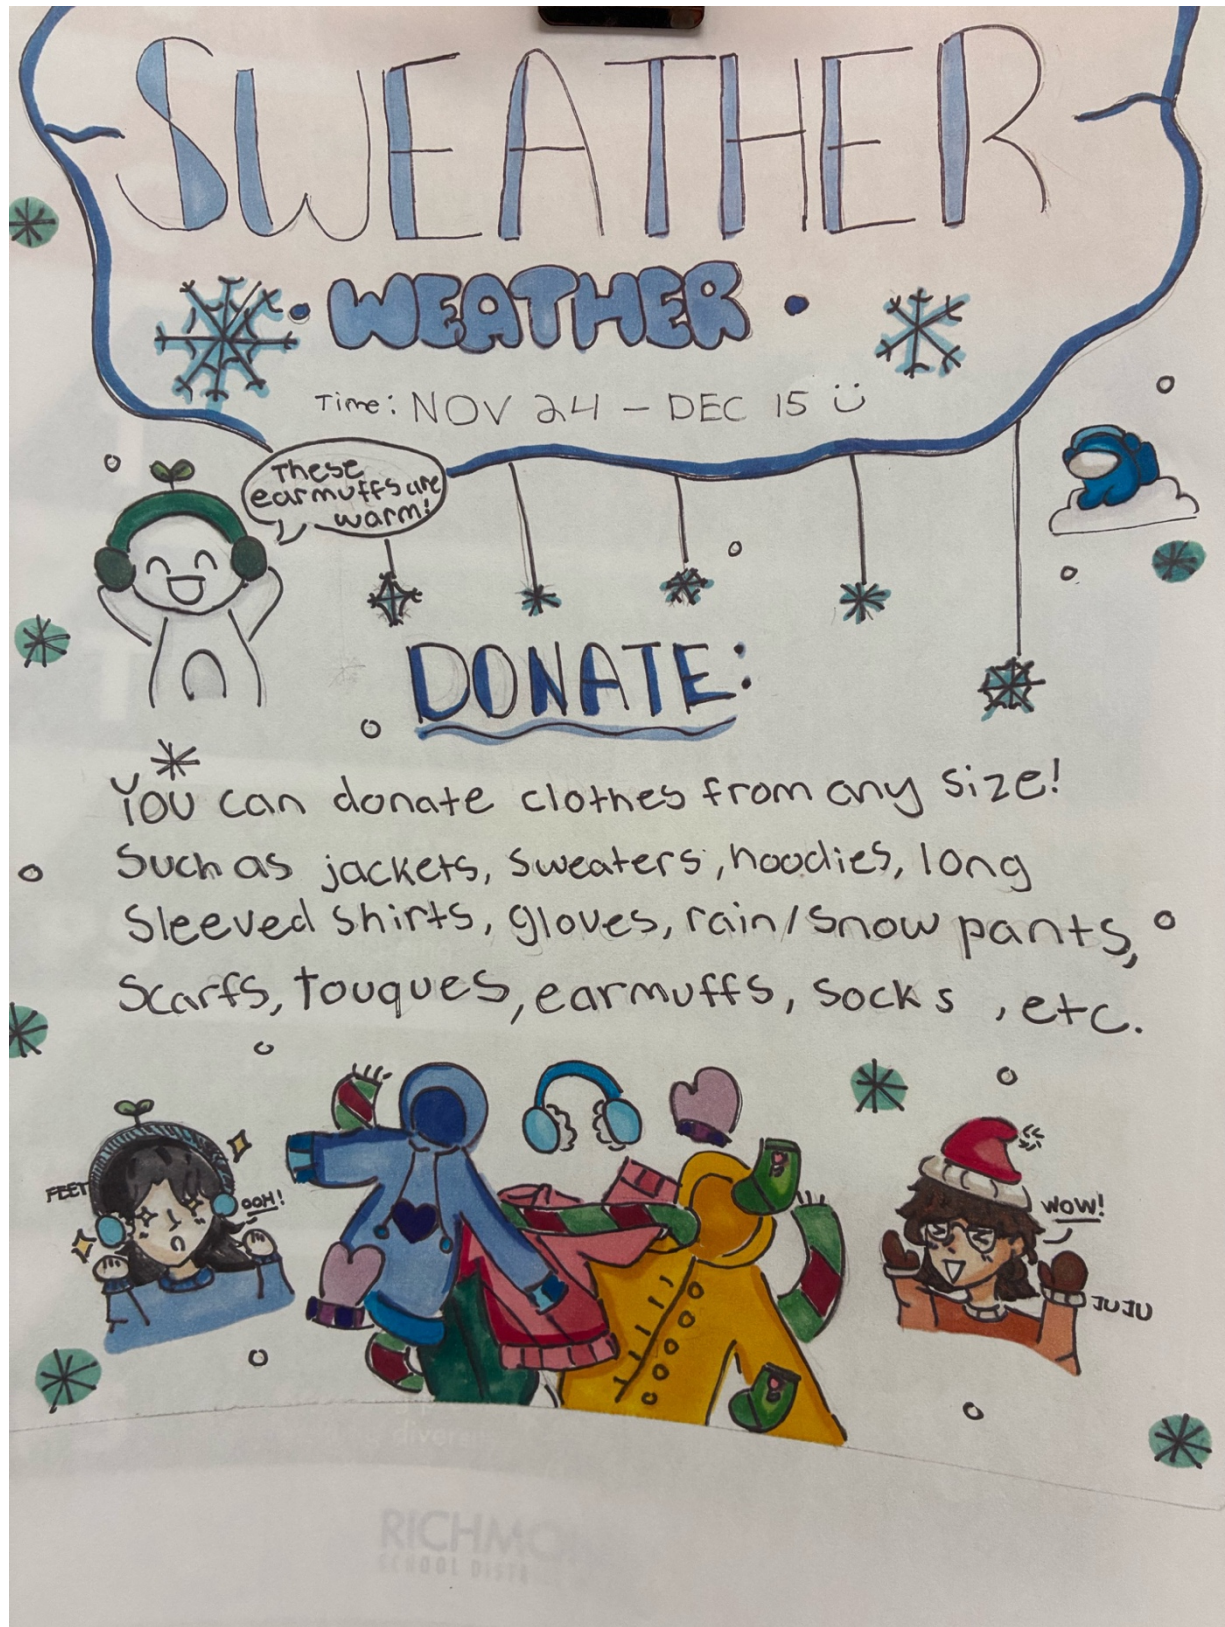 SWEATHER
• WEATHER •
Time: NOV 24 - DEC 15 ü
These
earmuffs are
warm!
DONATE:
You can donate clothes from any size!
Such as jackets, sweaters, hoodies, long
sleeved shirts, gloves, rain/snow pants,
scarfs, touques, earmuffs, socks, etc.
FEET
OOH!
WOW!
JUJU
RICHMO
SCHOOL DIST